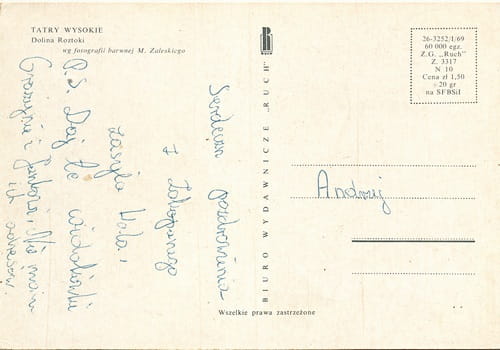 TATRY WYSOKIE
Dolina Roztoki
wg fotografii barwnej M. Zaleskiego
Serdeczne pozdrowienia
z Zakopanego
zasyła Hala,
P.S. Daj te widokówki
Grażynie i
ich adresów.
BIURO WYDAWNICZE „RUCH"
RUCH
26-3252/I/69
60 000 egz.
Z.G. „Ruch"
Z. 3317
N 10
Cena zł 1,50
+ 20 gr
na SFBSiI
Andrzej
Wszelkie prawa zastrzeżone